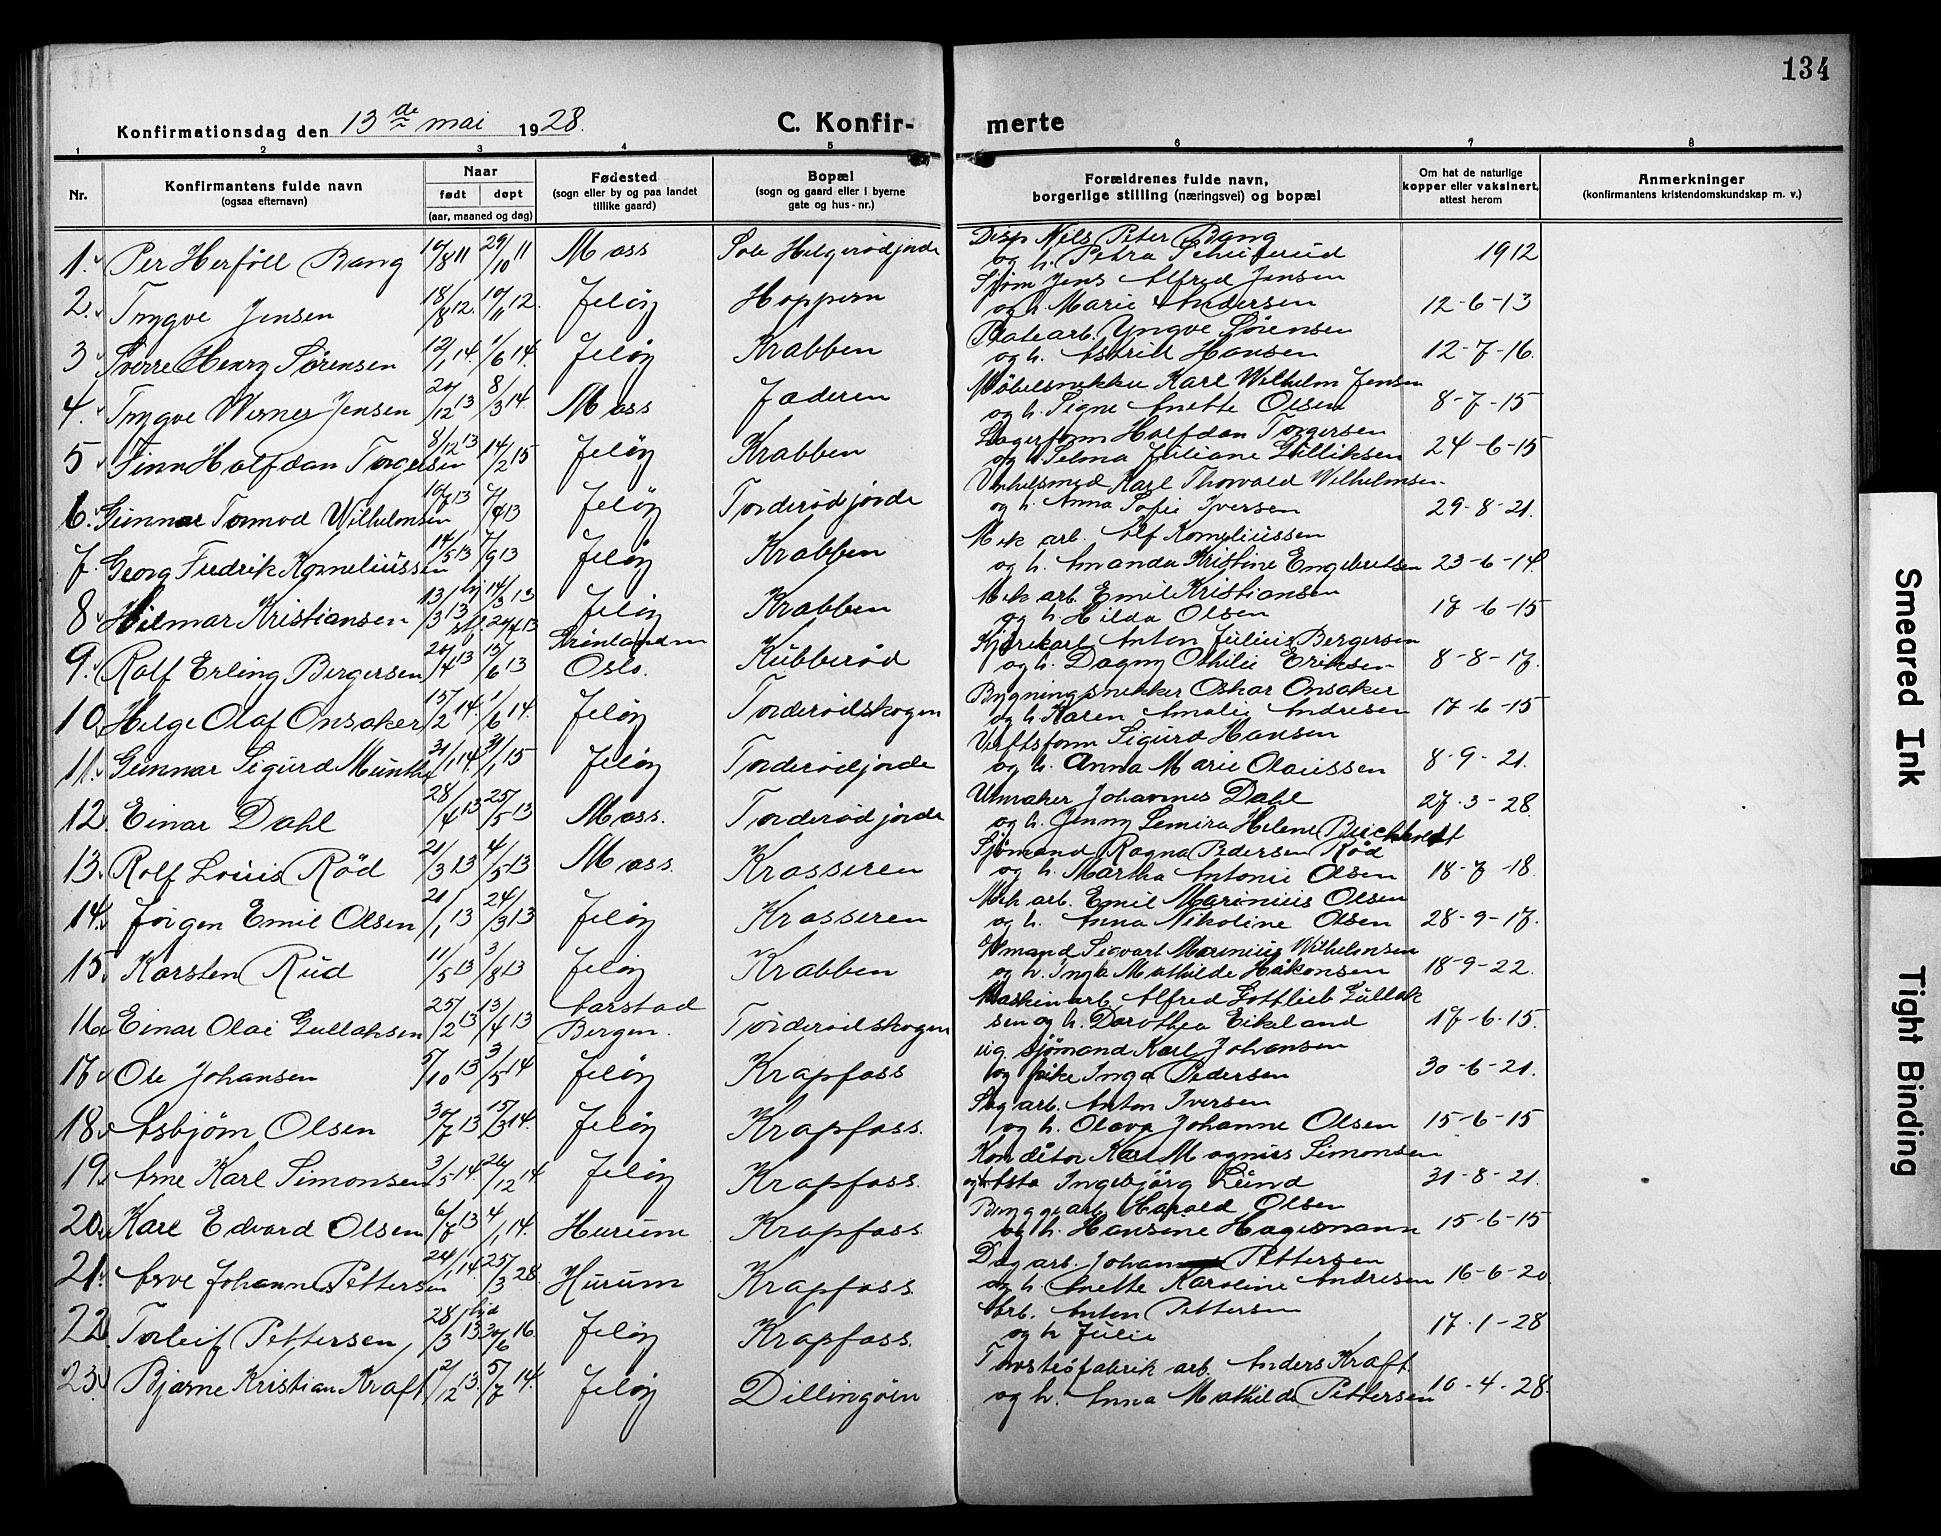 134
Konfirmationsdag den 13de mai 1928. C. Konfir- merte
1 2 3 4 5 6 7 8
Nr. Konfirmantens fulde navn (ogsaa efternavn) Naar født døpt (aar, maaned og dag) Fødested (sogn eller by og paa landet tillike gaard) Bopæl (sogn og gaard eller i byerne gate og hus-nr.) Forældrenes fulde navn, borgerlige stilling (næringsvei) og bopæl Om hat de naturlige kopper eller vaksinert, attest herom Anmerkninger (konfirmantens kristendomskundskap m. v.)
1. Per Herföll Bang 10/8 11 29/10 11 Moss Helgerødjorde Disp Nils Peter Bang
og h. Petra 1912
2. Trygve Jensen 18/8 12. 10/11 12. Jeløy Hoppern Sjøm Jens Alfred Jensen
og h. Marie Andersen 12-6-13
3 Sverre Henry Sørensen 12/1 14. 1/6 14. Jeløy Krabben Platearb. Yngve Sørensen
og h. Astrid Hansen 12-7-16.
4. Trygve Werner Jensen 20/12 13 8/3 14. Moss Jaderen Møbelsnekker Karl Wilhelm Jensen
og h. Signe Anette Olsen 8-7-15
5 Finn Halfdan Torgersen 8/12 13 14/2 15 Jeløy Krabben Lagerform Halfdan Torgersen
og h. Selma Juliane Gulliksen 24-6-15
6. Gunnar Tormod Wilhelmsen 10/2 13 7/4 13 Jeløy Torderødjorde Verkelsmed Karl Thorvald Wilhelmsen
og h. Anna Sofie Iversen 29-8-21.
7. Georg Fredrik Korneliussen 14/5 13 7/9 13 Jeløy Krabben Mek arb. Alf Korneliussen
og h. Amanda Kristine Engebretsen 23-6-14.
8 Hilmar Kristiansen 13/3 13 hj 14/3 13 st. 20/4 13 Jeløy Krabben Mek arb. Emil Kristiansen
og h. Hilda Olsen 17-6-15
9. Rolf Erling Bergersen 20/4 13 15/6 13 Grønland m Oslo. Kubberød Kjørekarl Anton Julius Bergersen
og h. Dagny Othilie Eriksen 8-8-17.
10. Helge Olaf Onsaker 15/2 14. 1/6 14. Jeløy Torderødskogen Bygningssnekker Oskar Onsaker
og h. Karen Amalie Andresen 17-6-15
11. Gunnar Sigurd Munthe 31/1 14 31/1 15 Jeløy Torderødjorde Verftsform Sigurd Hansen
og h. Anna Marie Olaussen 8-9-21.
12. Einar Dahl 28/4 13 25/5 13 Moss. Torderødjorde Urmaker Johannes Dahl
og h. Jenny Semira Helene 27-3-28.
13. Rolf Louis Rød 21/3 13 4/5 13 Moss. Krasseren Sjömand Ragna Pedersen Rød
og h. Martha Antonie Olsen 18-7-18.
14. Jørgen Emil Olsen 21/1 13 24/3 13 Jeløy Krasseren Mek arb. Emil Marinius Olsen
og h. Anna Nikoline Olsen 28-9-17.
15. Karsten Rud 11/5 13 3/8 13 Jeløy Krabben Sigvart Marenius Wilhelmsen
og h. Inga Mathilde Håkonsen 18-9-22.
16. Einar Olai Gullaksen 25/2 13 13/4 13 Aarstad Bergen. Torderødskogen Maskinarb. Alfred Gottlieb Gullak
sen og h. Dorothea Eikeland 17-6-15.
17. Ole Johansen 5/10 13 3/5 14 Jeløy Krapfoss ug. sjömand Karl Johansen
og pike Inga Pedersen 30-6-21.
18. Asbjörn Olsen 30/7 13 15/3 14. Jeløy Krapfoss. Sag arb. Anton Iversen
og h. Olava Johanne Olsen 15-6-15
19. Arne Karl Simonsen 3/5 14. 26/12 14 Jeløy Krapfoss. Konditor Karl Magnus Simonsen
og h. Asta Ingebjörg Lund 31-8-21.
20. Karl Edvard Olsen 6/7 13 4/1 14. Hurum Krapfoss. Bryggearb. Harald Olsen
og h. Hansine Hagesmann 15-6-15
21. Arve Johannes Pettersen 24/1 14. 25/3 28. Hurum Krapfoss. Dag arb. Johan Pettersen
og h Anette Karoline Andresen 16-6-20
22. Torleif Pettersen 28/3 13 hjd 30/6 16. Jeløy Krapfoss. Arb. Anton Pettersen
og h Julie 17-1-28
23. Bjarne Kristian Kraft 2/12 13. 5/7 14. Jeløy Dillingöen Torvströfabrik arb. Anders Kraft.
og h. Anna Mathilde Pettersen 10-4-28.
Smeared Ink
Tight Binding